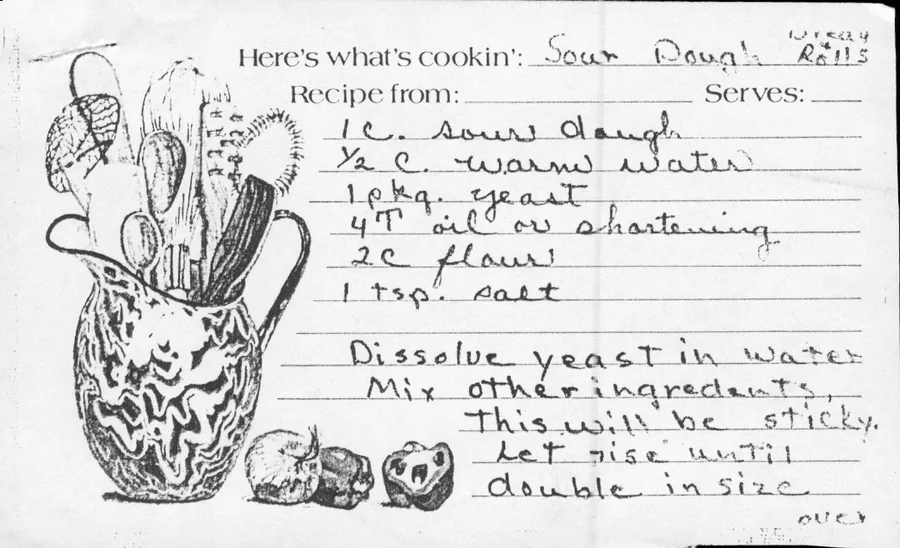 Here's what's cookin': Sour Dough Bread & Rolls
Recipe from: Serves:
1 C. sour dough
1/2 C. warm water
1 pkg. yeast
4 T oil or shortening
2 C flour
1 tsp. salt
Dissolve yeast in water
Mix other ingredents,
This will be sticky.
Let rise until
double in size
over